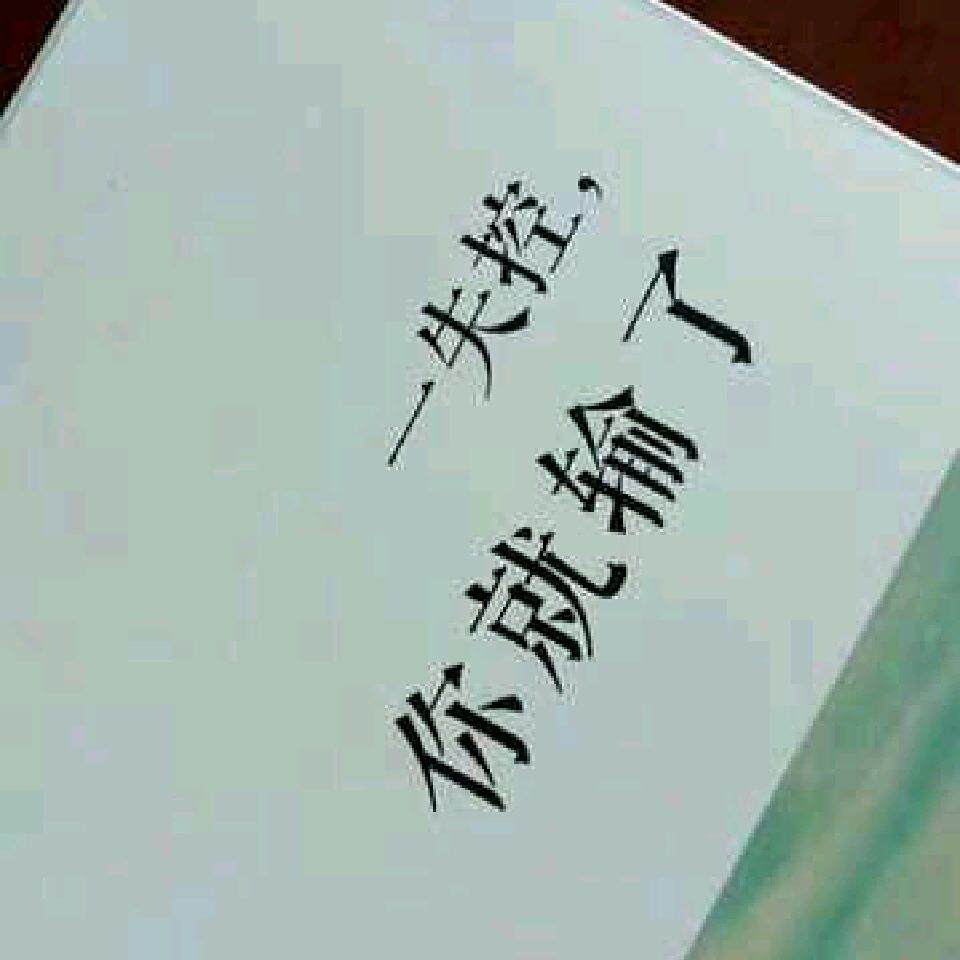 一失控，
你就输了